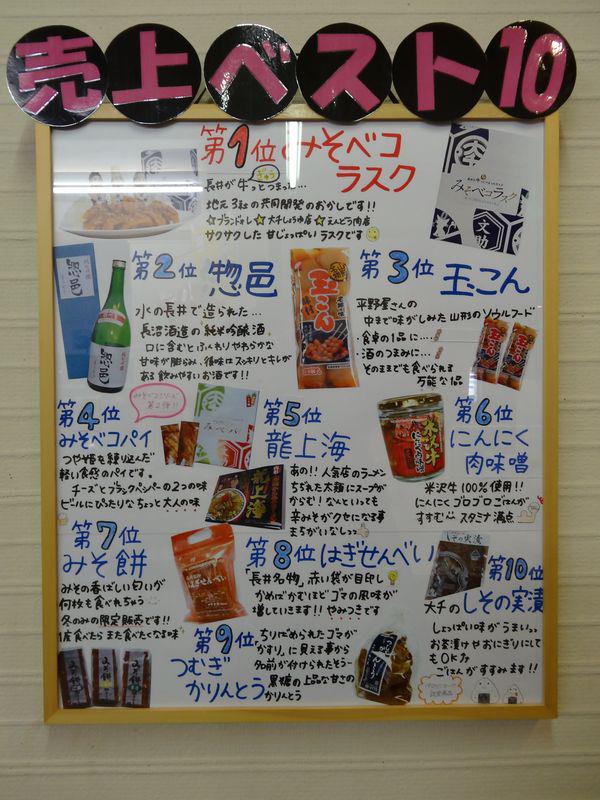 売上ベスト10
第1位 みそベコ
ラスク
長井が牛っとつまった…
ぎゅう
地元3社の共同開発のおかしです!!
☆ブランドゥレ☆大チしょうゆ店☆えんどう肉店
サクサクした甘じょっぱいラスクです
みそベコラスク
文助
第2位 惣邑
水の長井で造られた…
長沼酒造の純米吟醸酒。
口に含むとふんわりやわらかな
甘味が膨らみ、後味はスッキリとキレが
ある飲みやすいお酒です!!
惣邑
玉こん
第3位 玉こん
平野屋さんの
中まで味がしみた山形のソウルフード
・食卓の1品に…
・酒のつまみに…
そのままでも食べられる
万能な1品
第4位
みそベコパイ
つや姫を練り込んだ
軽い食感のパイです。
チーズとブラックペッパーの2つの味
ビールにぴったりなちょっと大人の味
みそベコシリーズ
第2弾!!
第5位
龍上海
あの!!人気店のラーメン
ちぢれた太麺にスープが
からむ!なんといっても
辛みそがクセになる事
まちがいなしっっ
龍上海
第6位
にんにく
肉味噌
米沢牛100%使用!!
にんにくゴロゴロごはんが
すすむ スタミナ満点
米沢牛
第7位
みそ餅
みその香ばしい匂いが
何枚も食べれちゃう
冬のみの限定販売です!!
1度食べたらまた食べたくなる味
みそ餅
第8位 はぎせんべい
「長井名物」赤い袋が目印!
かめばかむほどゴマの風味が
増していきます!!やみつきです
はぎせんべい
第9位
つむぎ
かりんとう
ちりばめられたゴマが
かすりに見える事から
名前が付けられたそう…
黒糖の上品な甘さの
かりんとう
第10位
大チのしその実漬
しょっぱい味がうまいっっ
お茶漬けやおにぎりにして
もOK♪
ごはんがすすみます!!
しその実漬